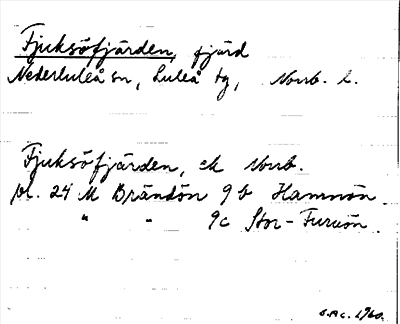 Fjuksöfjärden, fjärd
Nederluleå sn, Luleå tg, Norrb. l.
Fjuksöfjärden, ek Norrb.
bl. 24 M Brändön 9b Hamnön
" " 9c Stor-Furuön
S.A.C. 1960.